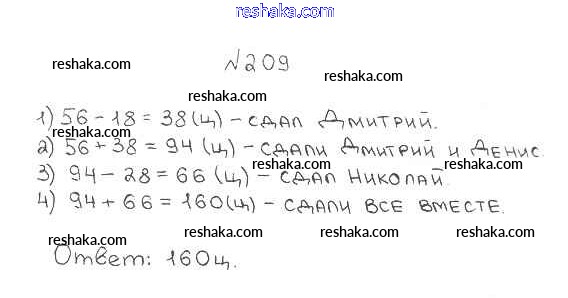 reshaka.com
№209
reshaka.com
reshaka.com
reshaka.com
1) 56 - 18 = 38 (ц) - сдал Дмитрий.
reshaka.com
2) 56 + 38 = 94 (ц) - сдали Дмитрий и Денис.
reshaka.com
reshaka.com
3) 94 - 28 = 66 (ц) - сдал Николай.
reshaka.com
4) 94 + 66 = 160 (ц) - сдали все вместе.
reshaka.com
reshaka.com
reshaka.com
Ответ: 160 ц.